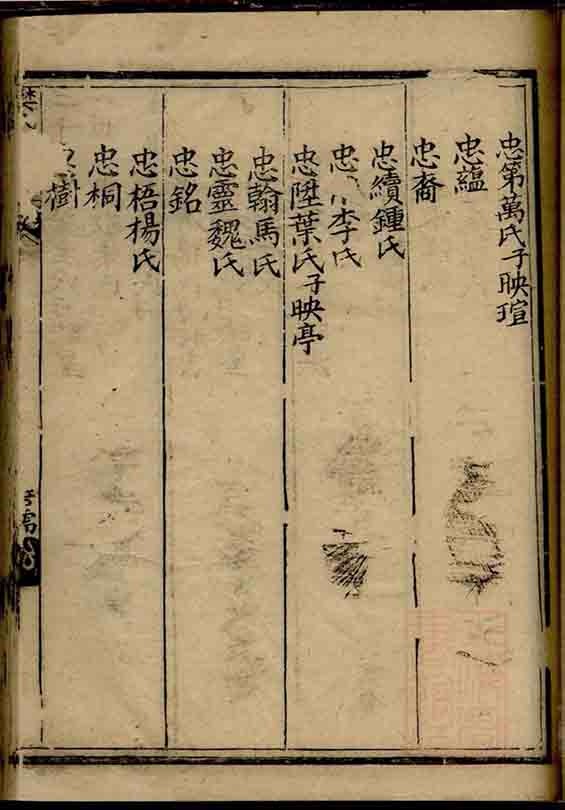 忠第萬氏子映瑄
忠蘊
忠裔
忠續鍾氏
忠 李氏
忠陞葉氏子映亭
忠翰馬氏
忠靈魏氏
忠銘
忠梧楊氏
忠桐
樹